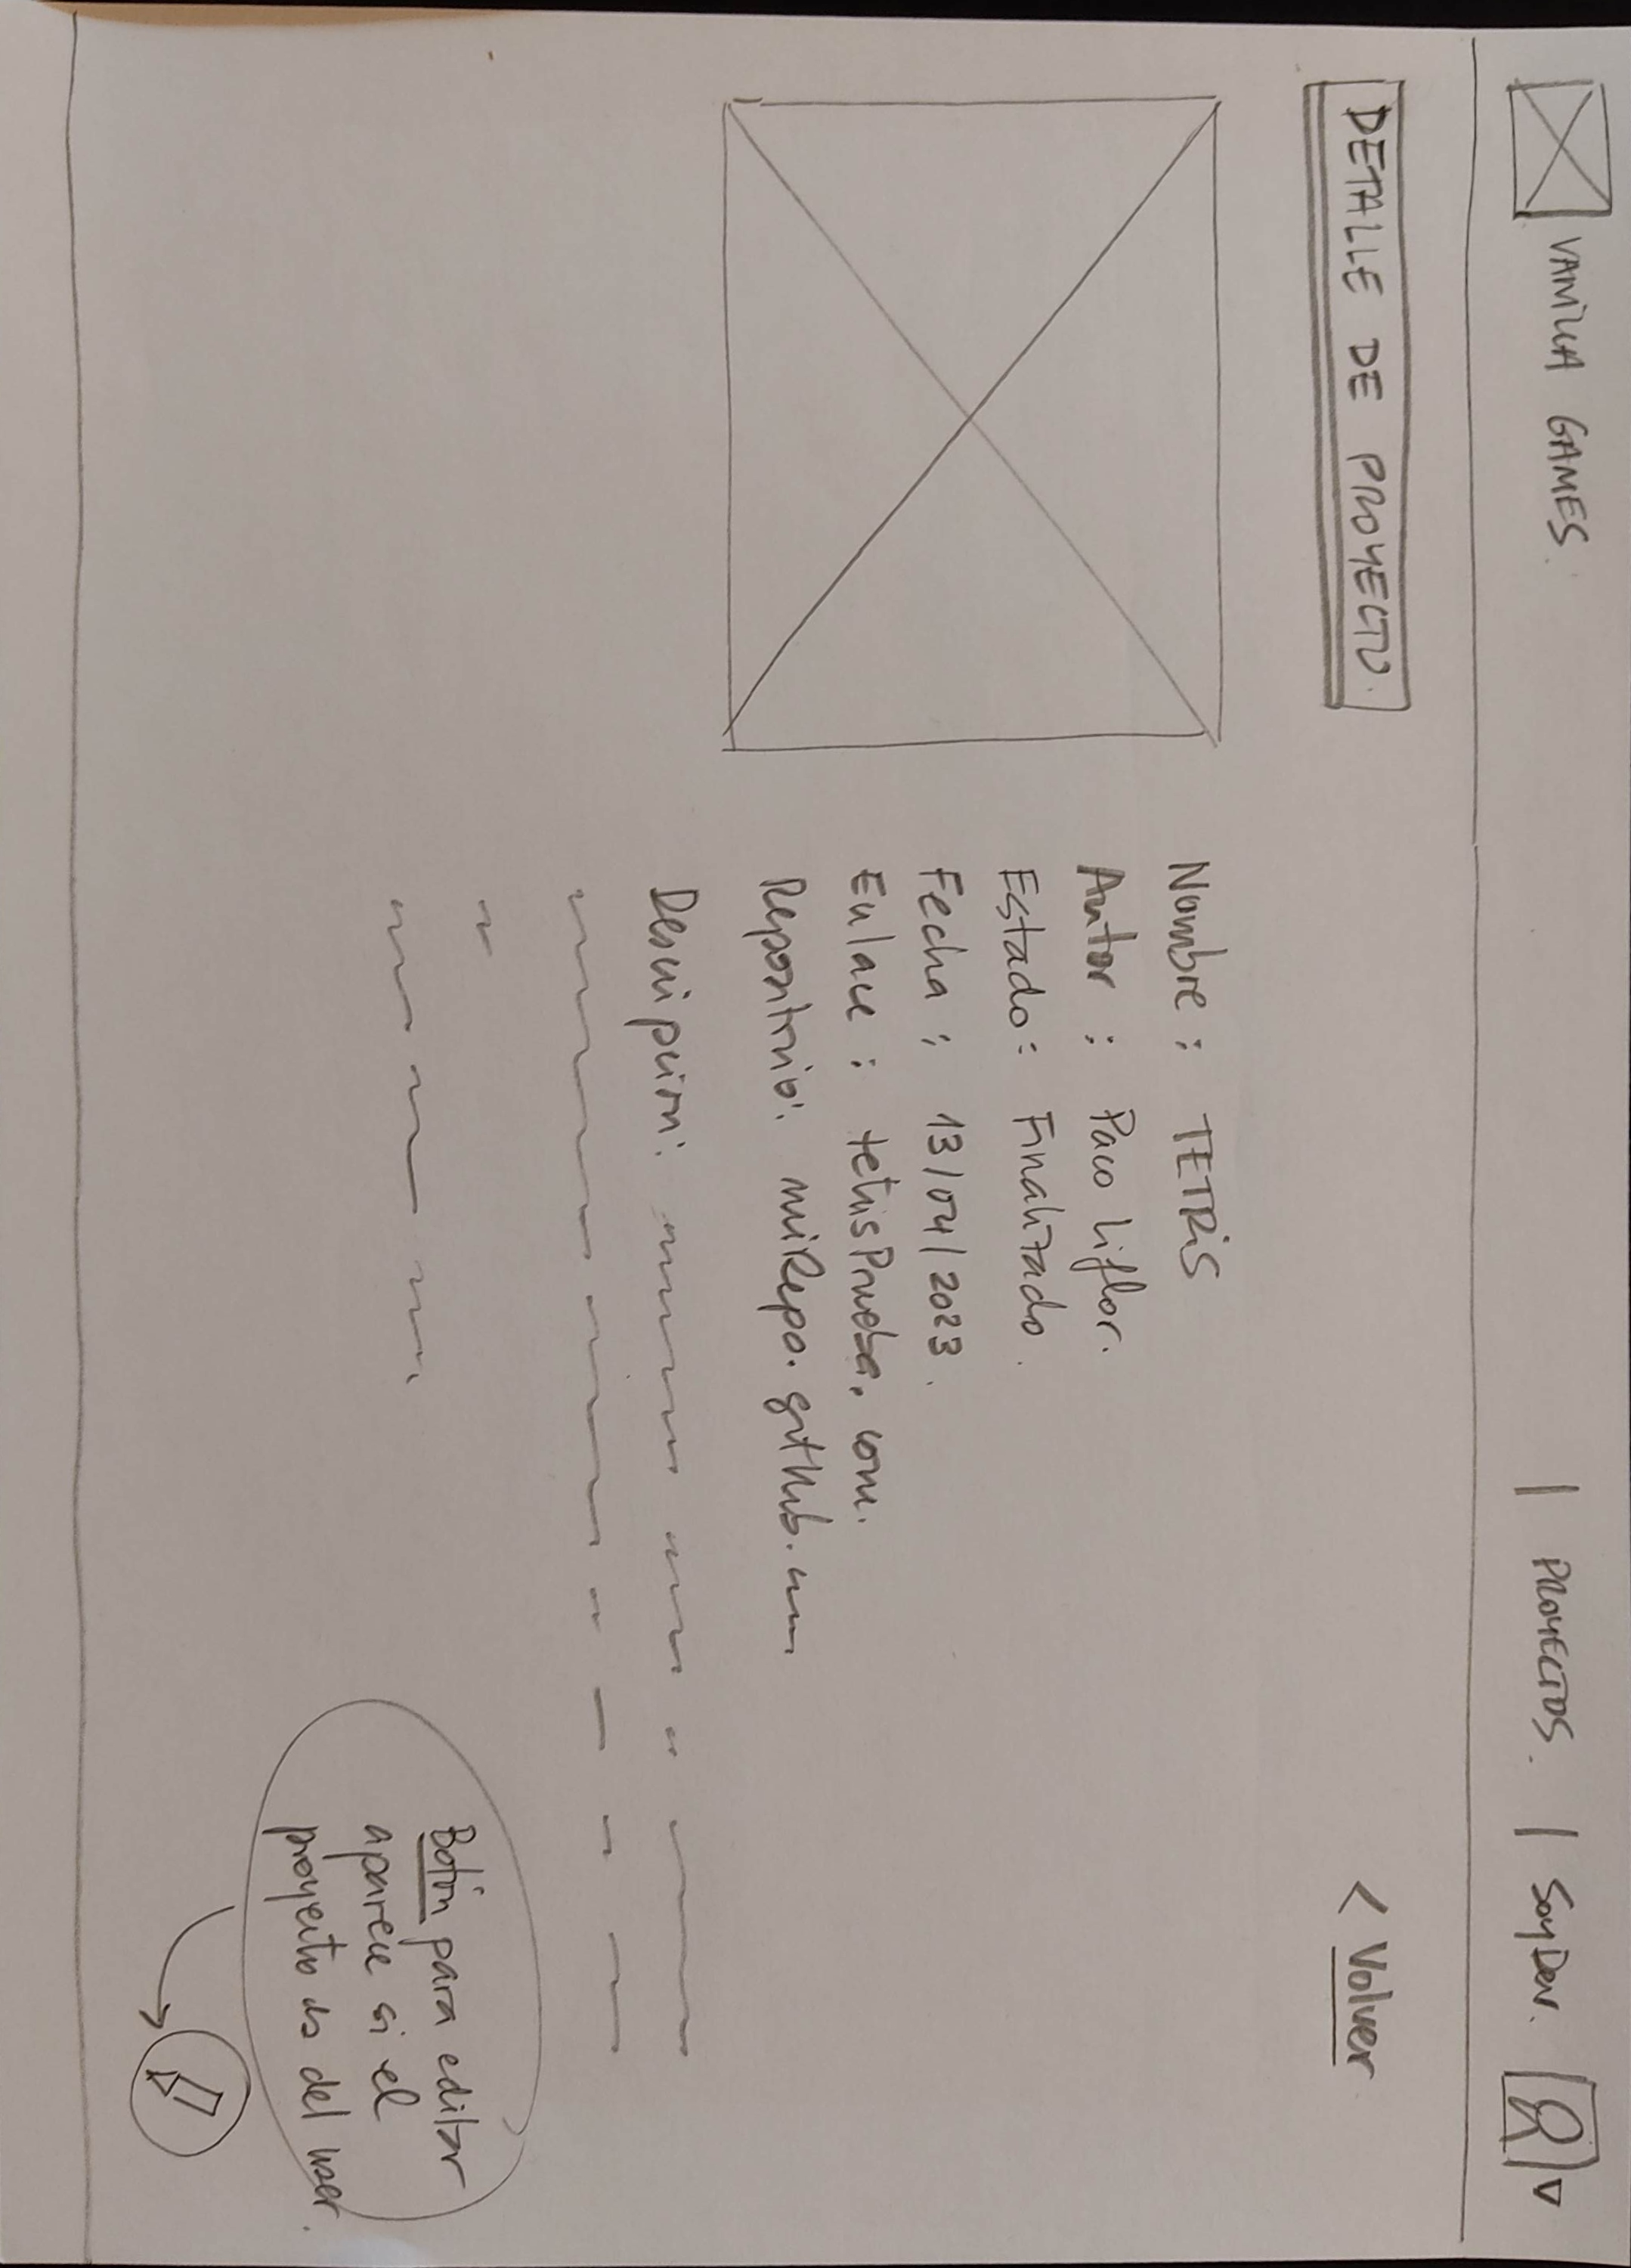 VANILLA GAMES.
| PROYECTOS. | SoyDev.
DETALLE DE PROYECTO.
< Volver
Nombre : TETRiS
Autor : Paco Liflor.
Estado : Finalizado.
Fecha : 13/04/2023.
Enlace : tetrisPrueba.com.
Repositorio: miRepo.gitHub.com
Descripcion:
Botón para editar
aparece si el
proyecto es del user.